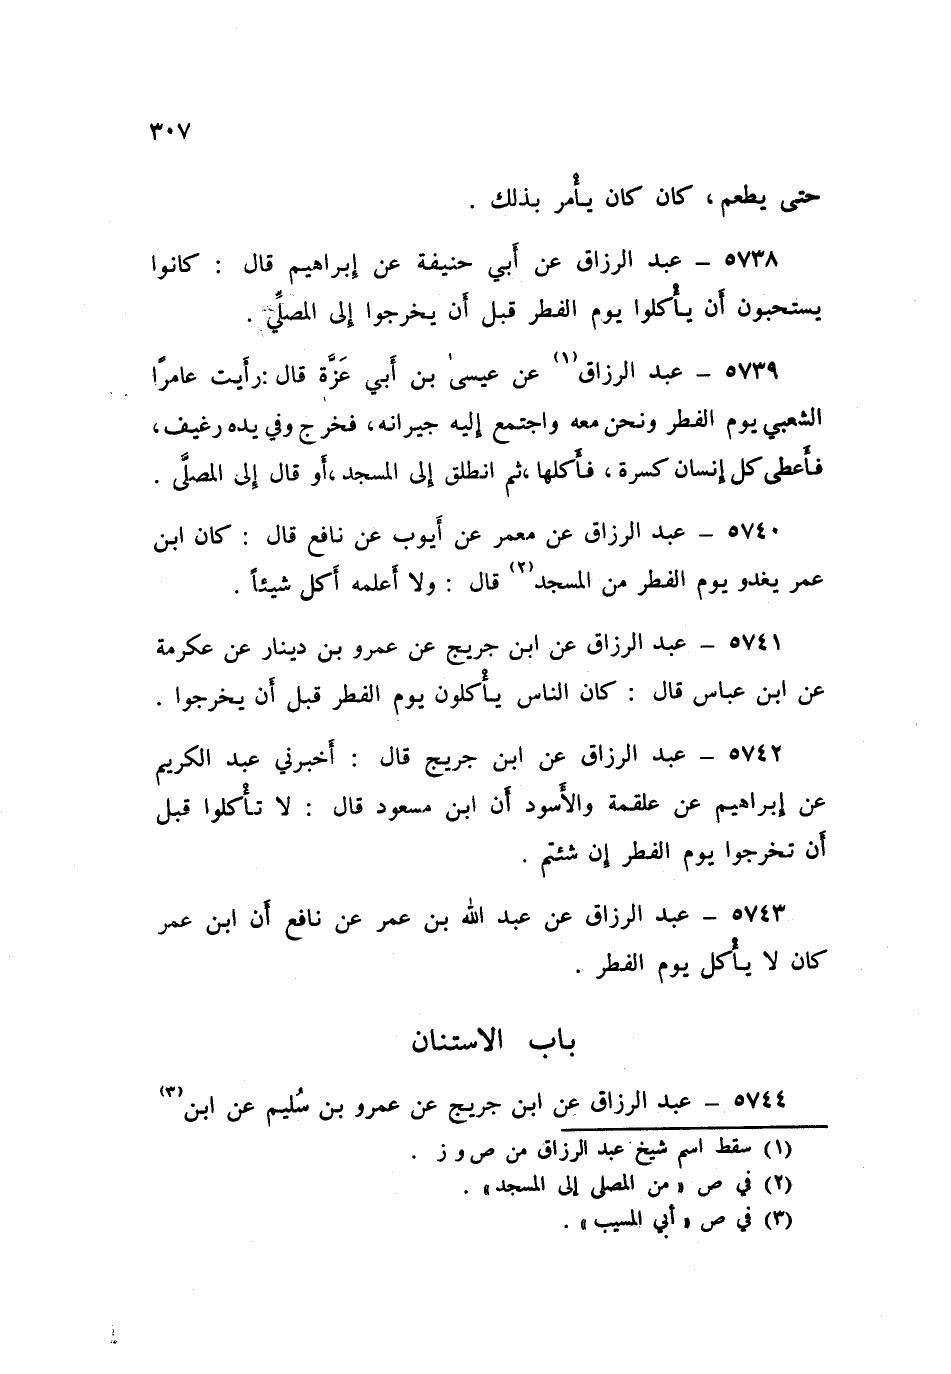 ٣٠٧
حتى يطعم ، كان كان يأمر بذلك .
٥٧٣٨ – عبد الرزاق عن أبي حنيفة عن إبراهيم قال : كانوا
يستحبون أن يأكلوا يوم الفطر قبل أن يخرجوا إلى المصلِّي .
٥٧٣٩ – عبد الرزاق(١) عن عيسىٰ بن أبي عَزَّة قال : رأيت عامرًا
الشعبي يوم الفطر ونحن معه واجتمع إليه جيرانه ، فخرج وفي يده رغيف ،
فأعطى كل إنسان كسرة ، فأكلها ، ثم انطلق إلى المسجد ، أو قال إلى المصلَّى .
٥٧٤٠ – عبد الرزاق عن معمر عن أيوب عن نافع قال : كان ابن
عمر يغدو يوم الفطر من المسجد(٢) قال : ولا أعلمه أكل شيئاً .
٥٧٤١ – عبد الرزاق عن ابن جريج عن عمرو بن دينار عن عكرمة
عن ابن عباس قال : كان الناس يأكلون يوم الفطر قبل أن يخرجوا .
٥٧٤٢ – عبد الرزاق عن ابن جريج قال : أخبرني عبد الكريم
عن إبراهيم عن علقمة والأسود أن ابن مسعود قال : لا تأكلوا قبل
أن تخرجوا يوم الفطر إن شئتم .
٥٧٤٣ – عبد الرزاق عن عبد الله بن عمر عن نافع أن ابن عمر
كان لا يأكل يوم الفطر .
باب الاستنان
٥٧٤٤ – عبد الرزاق عن ابن جريج عن عمرو بن سُليم عن ابن(٣)
(١) سقط اسم شيخ عبد الرزاق من ص و ز .
(٢) في ص « من المصلى إلى المسجد » .
(٣) في ص « أبي المسيب » .